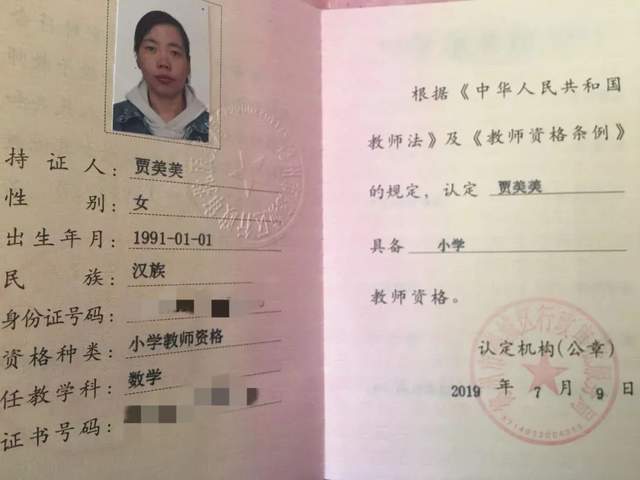 持证人：贾美美
性别：女
出生年月：1991-01-01
民族：汉族
身份证号码：
资格种类：小学教师资格
任教学科：数学
证书号码：
根据《中华人民共和国
教师法》及《教师资格条例》
的规定，认定 贾美美
具备 小学
教师资格。
认定机构(公章)
2019 年 7 月 9 日